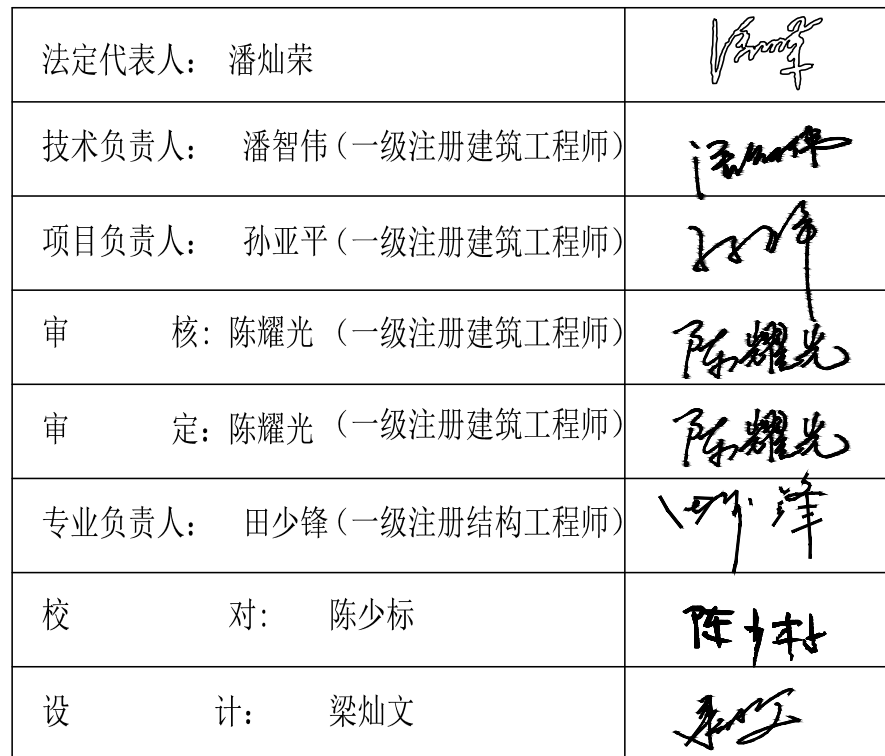 法定代表人： 潘灿荣
技术负责人： 潘智伟（一级注册建筑工程师）
项目负责人： 孙亚平（一级注册建筑工程师）
审 核：陈耀光 （一级注册建筑工程师）
陈耀光
审 定：陈耀光 （一级注册建筑工程师）
陈耀光
专业负责人： 田少锋（一级注册结构工程师）
校 对： 陈少标
设 计： 梁灿文